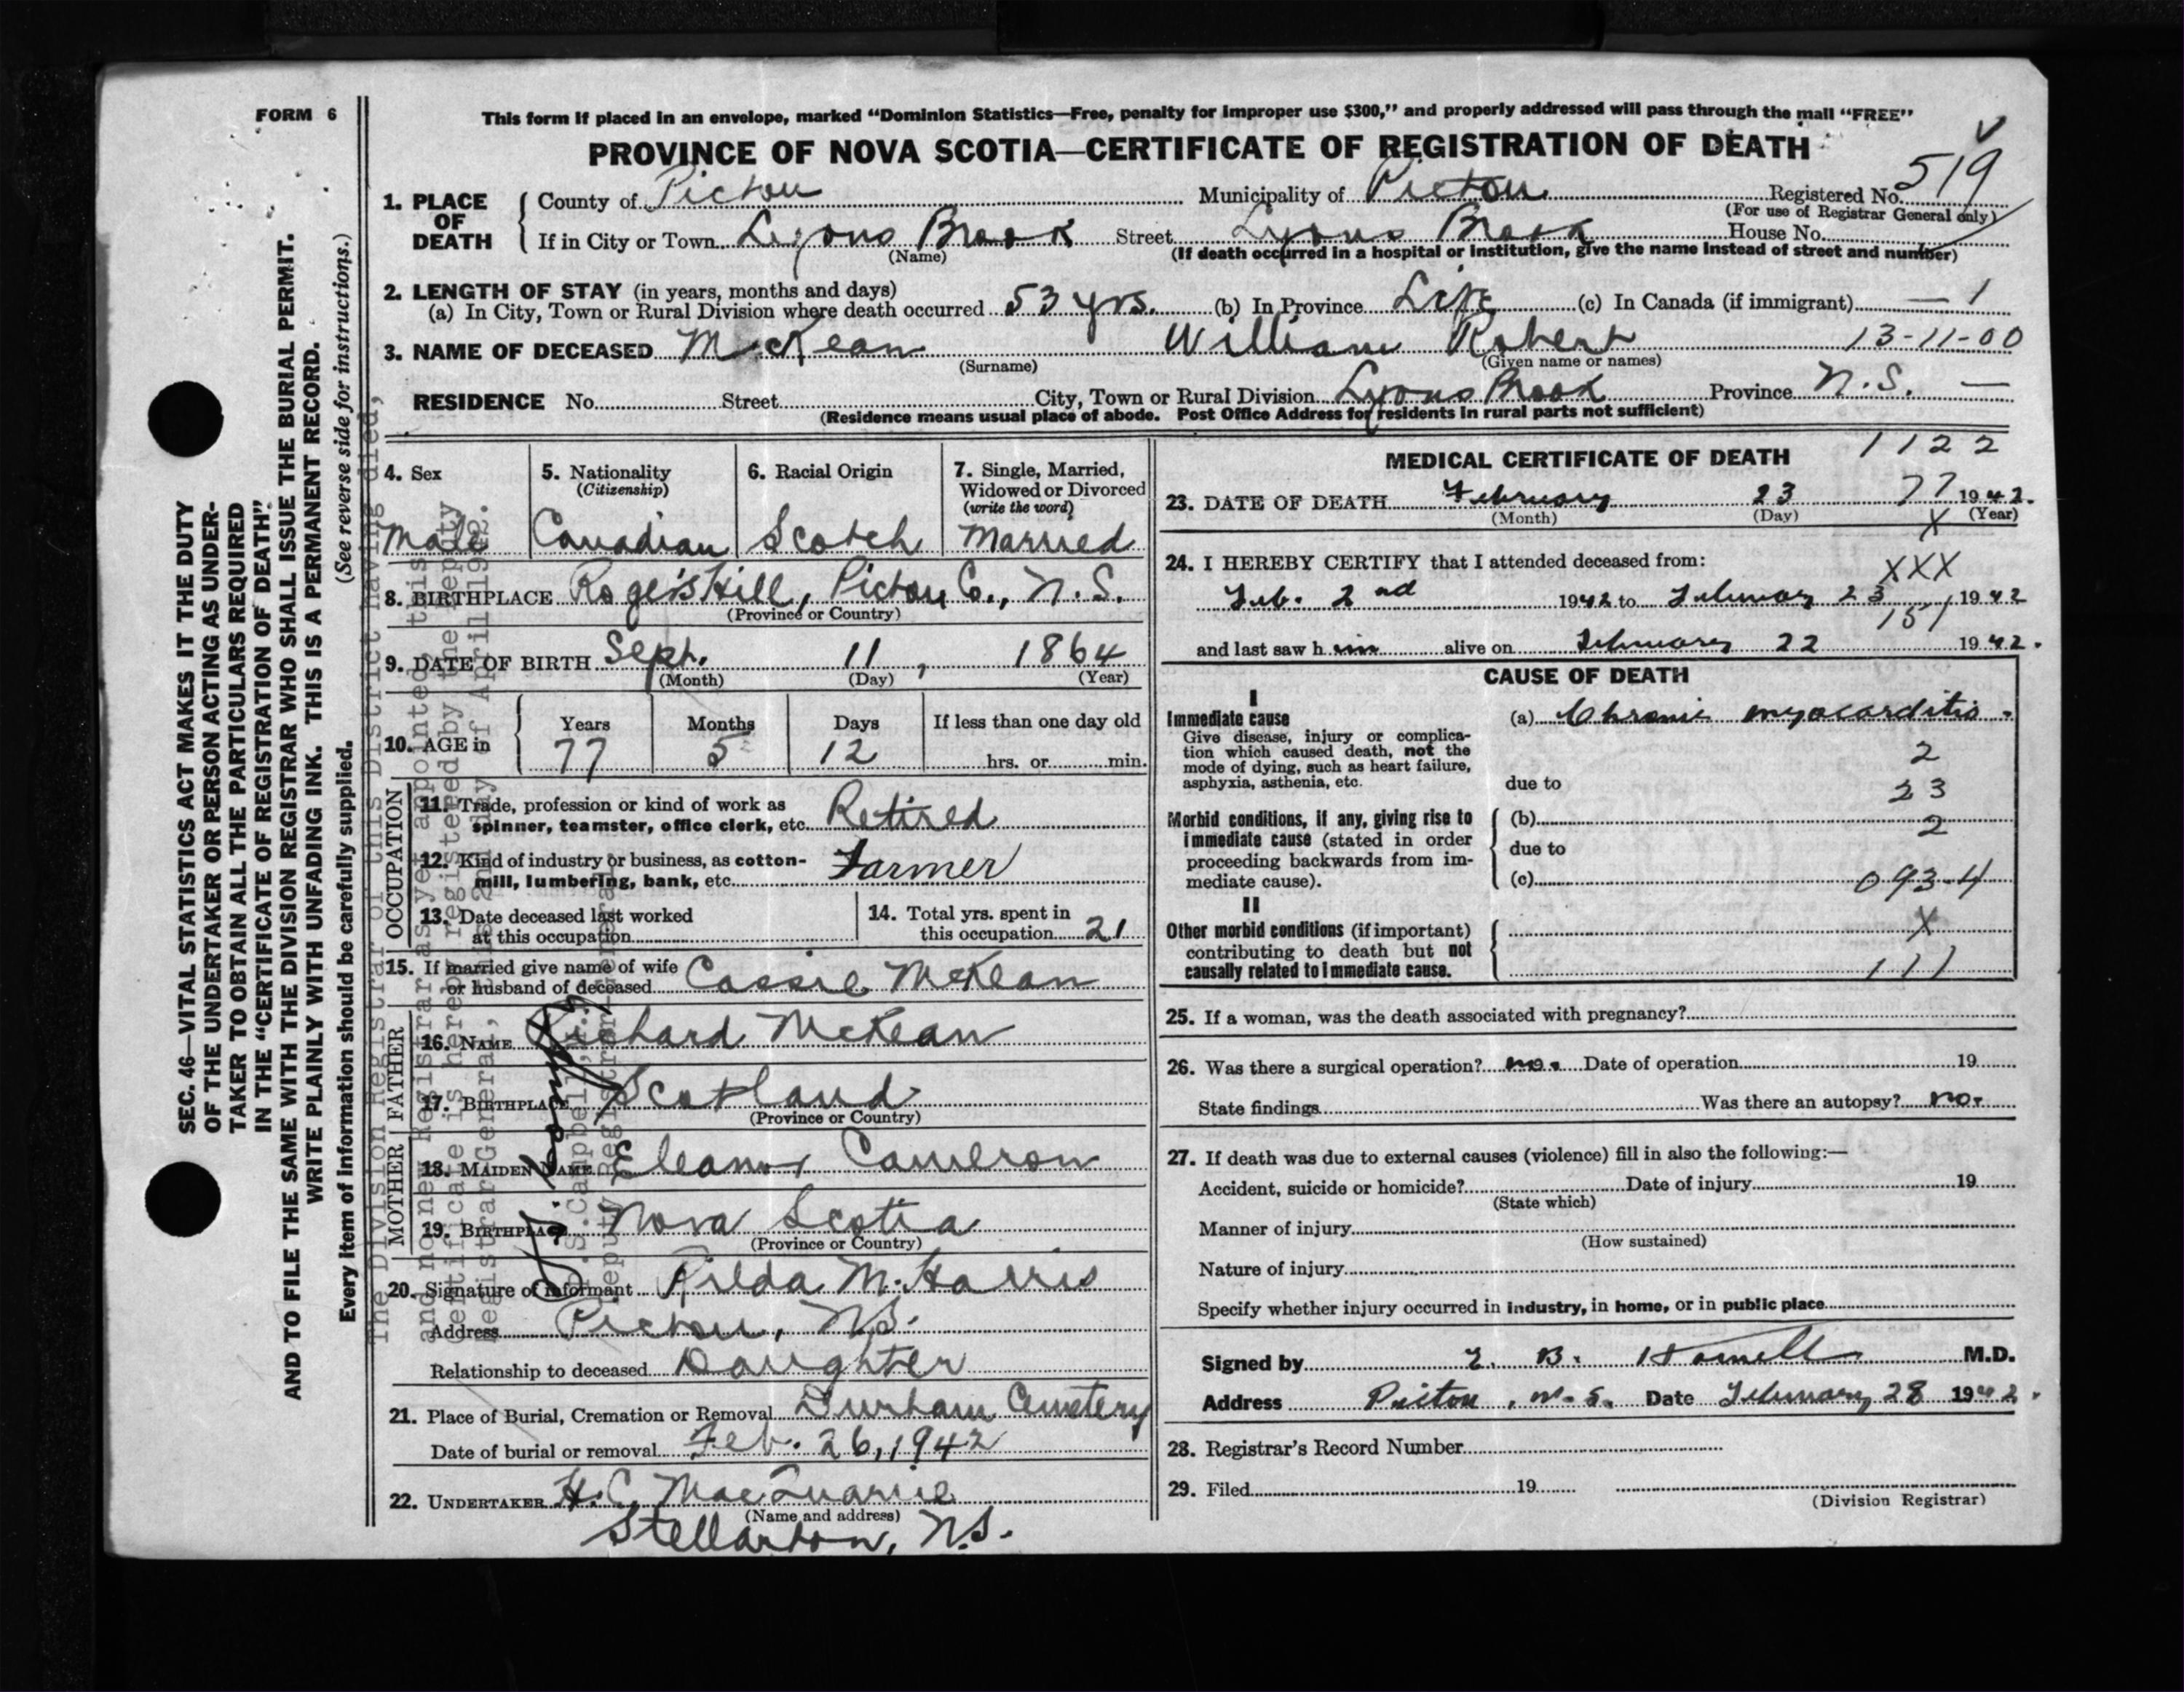 FORM 6
This form if placed in an envelope, marked "Dominion Statistics—Free, penalty for improper use $300," and properly addressed will pass through the mail "FREE"
PROVINCE OF NOVA SCOTIA—CERTIFICATE OF REGISTRATION OF DEATH
1. PLACE OF DEATH
County of Pictou Municipality of Pictou Registered No. 519
(For use of Registrar General only)
If in City or Town Lyons Brook Street Lyons Brook House No.
(Name) (If death occurred in a hospital or institution, give the name instead of street and number)
2. LENGTH OF STAY (in years, months and days)
(a) In City, Town or Rural Division where death occurred 53 yrs. (b) In Province Life (c) In Canada (if immigrant) — 1
3. NAME OF DECEASED McKean William Robert 13-11-00
(Surname) (Given name or names)
RESIDENCE No. Street City, Town or Rural Division Lyons Brook Province N.S. —
(Residence means usual place of abode. Post Office Address for residents in rural parts not sufficient)
4. Sex
Male
5. Nationality
(Citizenship)
Canadian
6. Racial Origin
Scotch
7. Single, Married,
Widowed or Divorced
(write the word)
Married
8. BIRTHPLACE Roger's Hill, Pictou Co., N.S.
(Province or Country)
9. DATE OF BIRTH Sept. 11, 1864
(Month) (Day) (Year)
10. AGE in
Years Months Days If less than one day old
77 5 12 hrs. or min.
OCCUPATION
11. Trade, profession or kind of work as
spinner, teamster, office clerk, etc. Retired
12. Kind of industry or business, as cotton-
mill, lumbering, bank, etc. Farmer
13. Date deceased last worked
at this occupation
14. Total yrs. spent in
this occupation 21
15. If married give name of wife
or husband of deceased Cassie McKean
FATHER
16. NAME Richard McKean
17. BIRTHPLACE Scotland
(Province or Country)
MOTHER
18. MAIDEN NAME Eleanor Cameron
19. BIRTHPLACE Nova Scotia
(Province or Country)
20. Signature of informant Rilda M. Harris
Address Pictou, N.S.
Relationship to deceased Daughter
21. Place of Burial, Cremation or Removal Durham Cemetery
Date of burial or removal Feb. 26, 1942
22. UNDERTAKER H. C. MacQuarrie
(Name and address)
Stellarton, N.S.
MEDICAL CERTIFICATE OF DEATH
1122
23. DATE OF DEATH February 23 77 1942.
(Month) (Day) X (Year)
24. I HEREBY CERTIFY that I attended deceased from:
XXX
Feb. 2nd 1942 to February 23 1942
151
and last saw h im alive on February 22 1942.
CAUSE OF DEATH
I
Immediate cause
Give disease, injury or complica-
tion which caused death, not the
mode of dying, such as heart failure,
asphyxia, asthenia, etc.
(a) Chronic myocarditis.
2
due to
23
Morbid conditions, if any, giving rise to
immediate cause (stated in order
proceeding backwards from im-
mediate cause).
(b)
2
due to
(c) 093-4
II
Other morbid conditions (if important)
contributing to death but not
causally related to immediate cause.
X
111
25. If a woman, was the death associated with pregnancy?
26. Was there a surgical operation? no. Date of operation 19
State findings Was there an autopsy? no.
27. If death was due to external causes (violence) fill in also the following:—
Accident, suicide or homicide? Date of injury 19
(State which)
Manner of injury
(How sustained)
Nature of injury
Specify whether injury occurred in industry, in home, or in public place
Signed by M.D.
Address Pictou, N.S. Date February 28 1942.
28. Registrar's Record Number
29. Filed 19
(Division Registrar)
SEC. 46—VITAL STATISTICS ACT MAKES IT THE DUTY
OF THE UNDERTAKER OR PERSON ACTING AS UNDER-
TAKER TO OBTAIN ALL THE PARTICULARS REQUIRED
IN THE "CERTIFICATE OF REGISTRATION OF DEATH"
AND TO FILE THE SAME WITH THE DIVISION REGISTRAR WHO SHALL ISSUE THE BURIAL PERMIT.
WRITE PLAINLY WITH UNFADING INK. THIS IS A PERMANENT RECORD.
Every item of information should be carefully supplied. (See reverse side for instructions.)
The Division Registrar of this District having died,
and no new Registrar as yet appointed, this
Certificate is hereby registered by the Deputy
Registrar General, this 2nd day of April 1942.
Deputy Registrar General